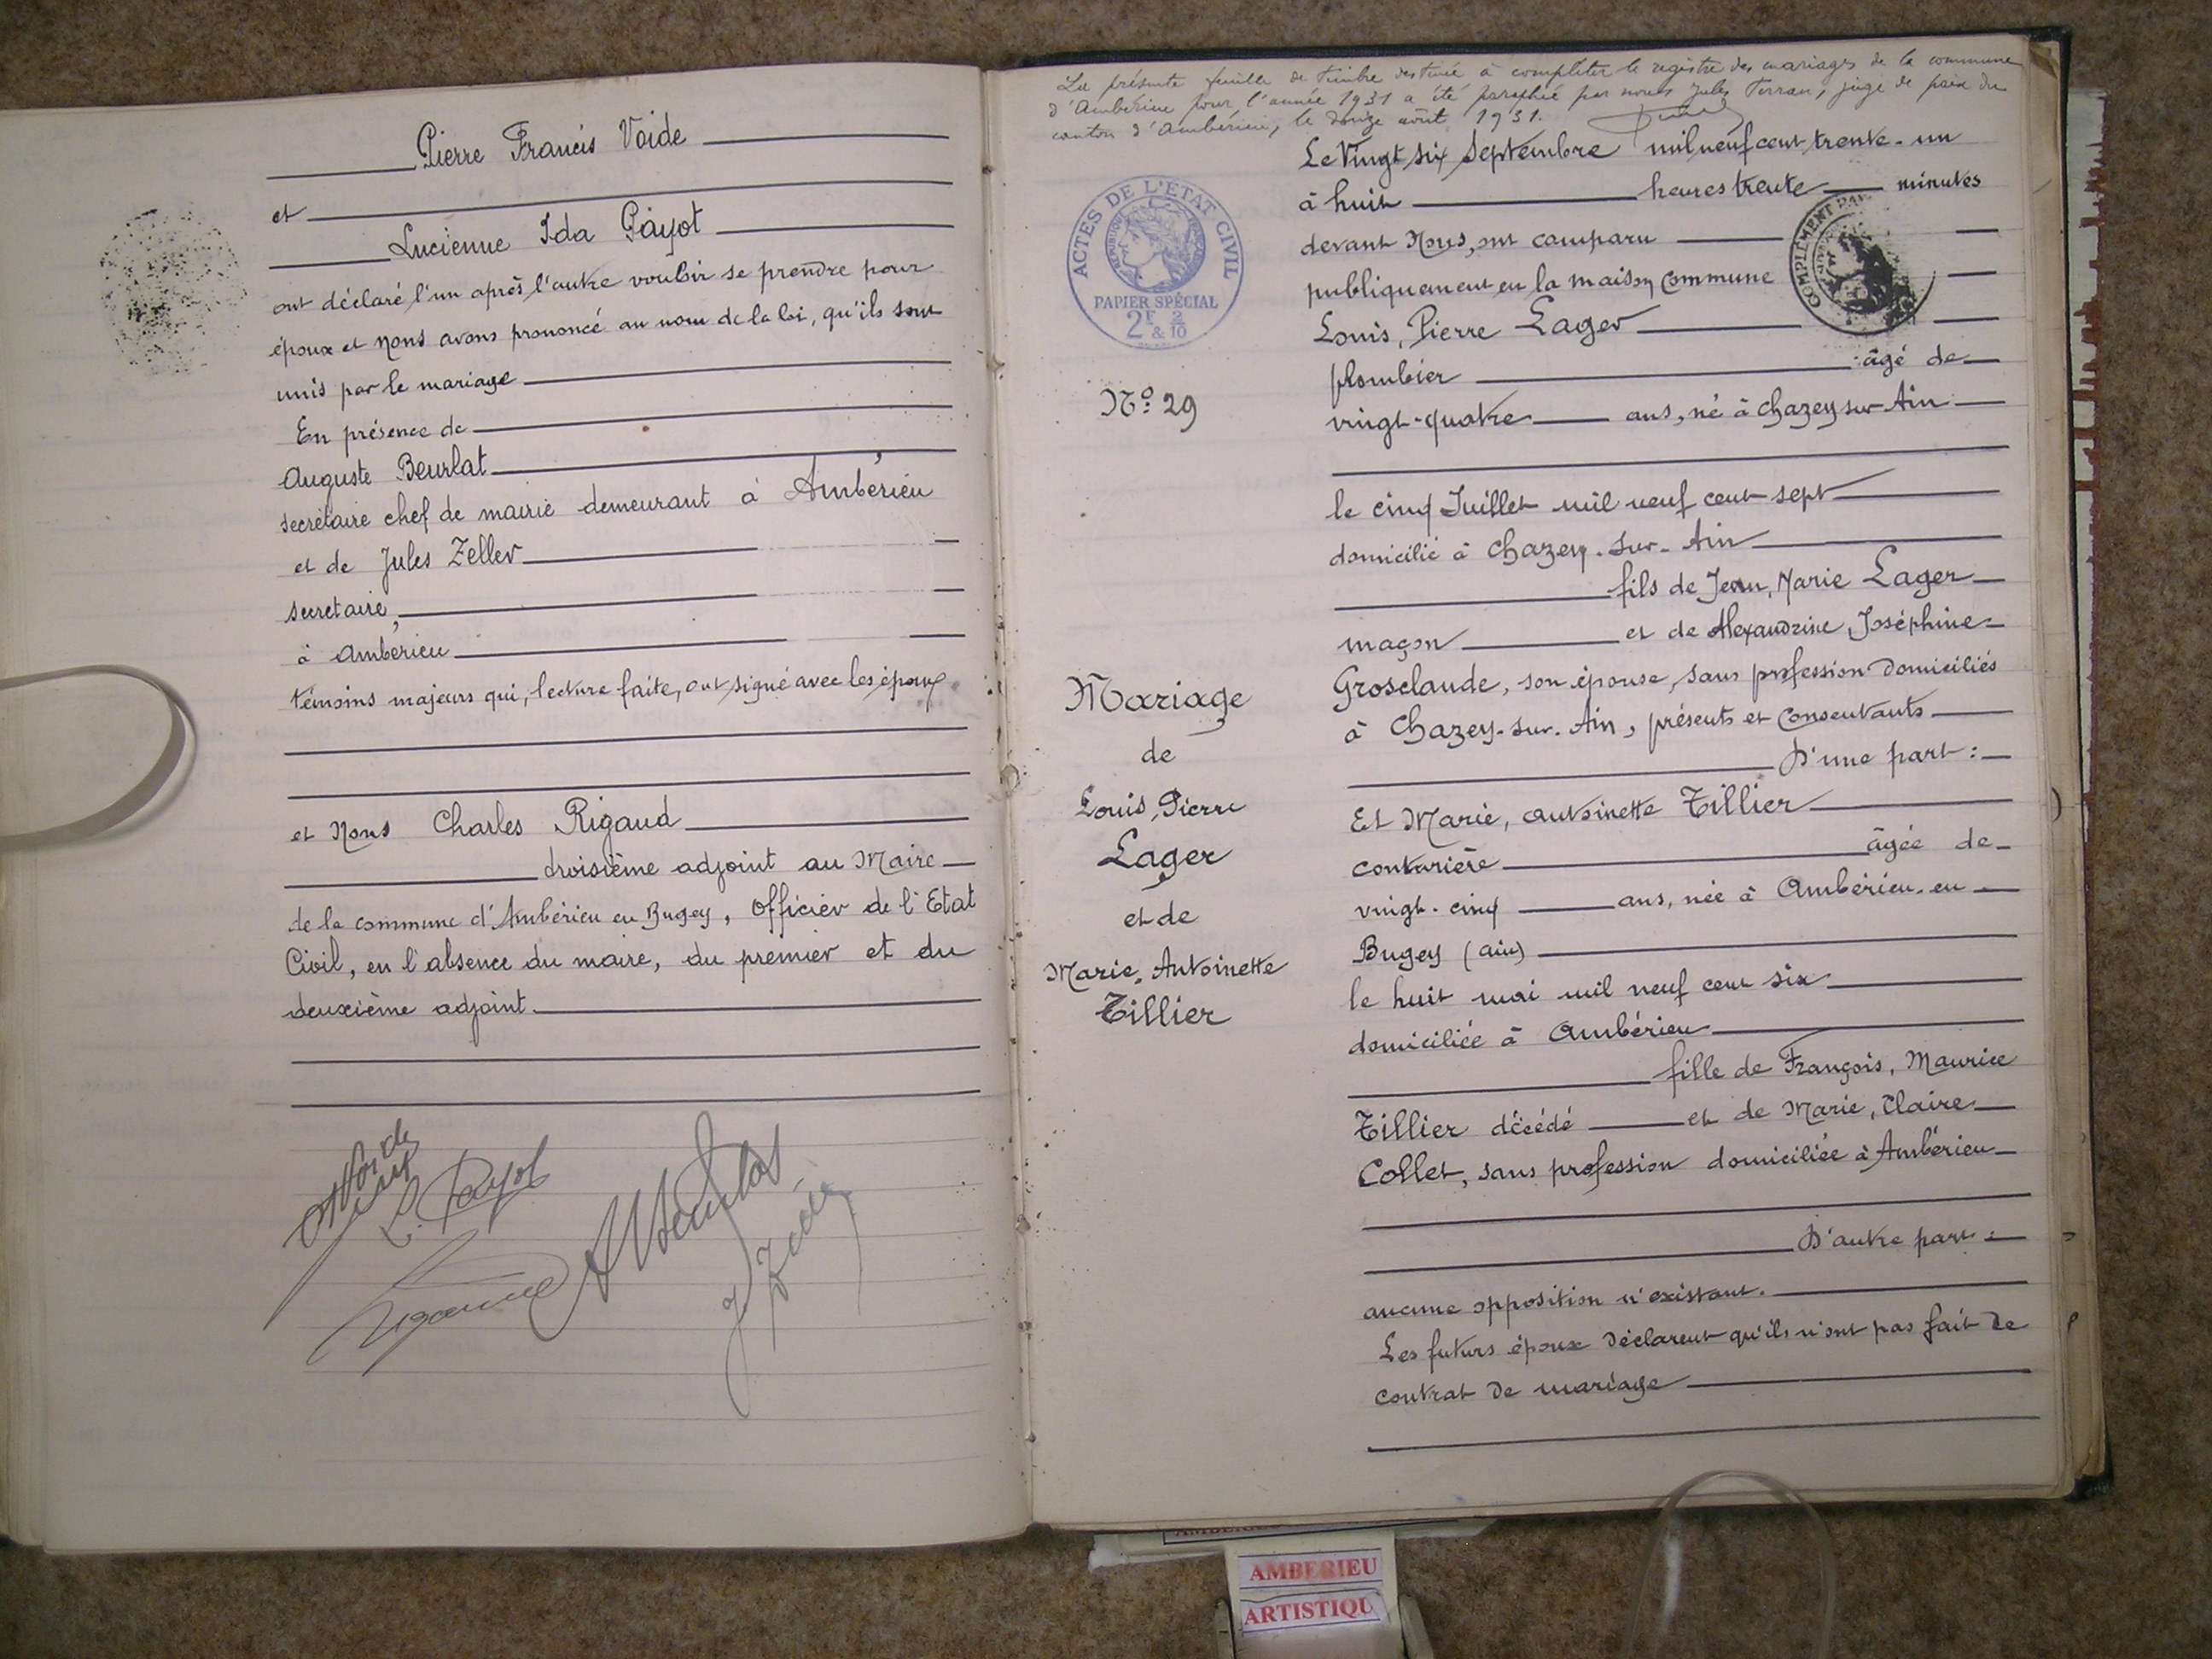 Pierre Francis Voide
et
Lucienne Ida Payot
ont déclaré l'un après l'autre vouloir se prendre pour
époux et Nous avons prononcé au nom de la loi, qu'ils sont
unis par le mariage
En présence de
Auguste Beurlat
secrétaire chef de mairie demeurant à Ambérieu
et de Jules Zeller
secretaire,
à Ambérieu
témoins majeurs qui, lecture faite, ont signé avec les époux
et Nous Charles Rigaud
troisième adjoint au Maire
de la commune d'Ambérieu en Bugey, Officier de l'Etat
Civil, en l'absence du maire, du premier et du
deuxième adjoint.
Voide
L. Payot
La présente feuille de timbre destinée à compléter le registre des mariages de la commune
d'Ambérieu pour l'année 1931 a été paraphée par nous Jules Ferran, juge de paix du
canton d'Ambérieu, le douze août 1931.
ACTES DE L'ÉTAT CIVIL
PAPIER SPÉCIAL
2F & 2/10
COMPLÉMENT
N° 29
Mariage
de
Louis, Pierre
Lager
et de
Marie, Antoinette
Tillier
Le Vingt six Septembre mil neuf cent trente-un
à huit heures trente minutes
devant Nous, ont comparu
publiquement en la maison commune
Louis, Pierre Lager
plombier âgé de
vingt-quatre ans, né à Chazey sur Ain
le cinq Juillet mil neuf cent sept
domicilié à Chazey-sur-Ain
fils de Jean, Marie Lager
maçon et de Alexandrine, Joséphine
Grosclaude, son épouse, sans profession domiciliés
à Chazey-sur-Ain, présents et consentants
D'une part :
Et Marie, Antoinette Tillier
couturière âgée de
vingt-cinq ans, née à Ambérieu-en
Bugey (ain)
le huit mai mil neuf cent six
domiciliée à Ambérieu
fille de François, Maurice
Tillier décédé et de Marie, Claire
Collet, sans profession domiciliée à Ambérieu
D'autre part :
aucune opposition n'existant.
Les futurs époux déclarent qu'ils n'ont pas fait de
contrat de mariage
AMBERIEU
ARTISTIQU